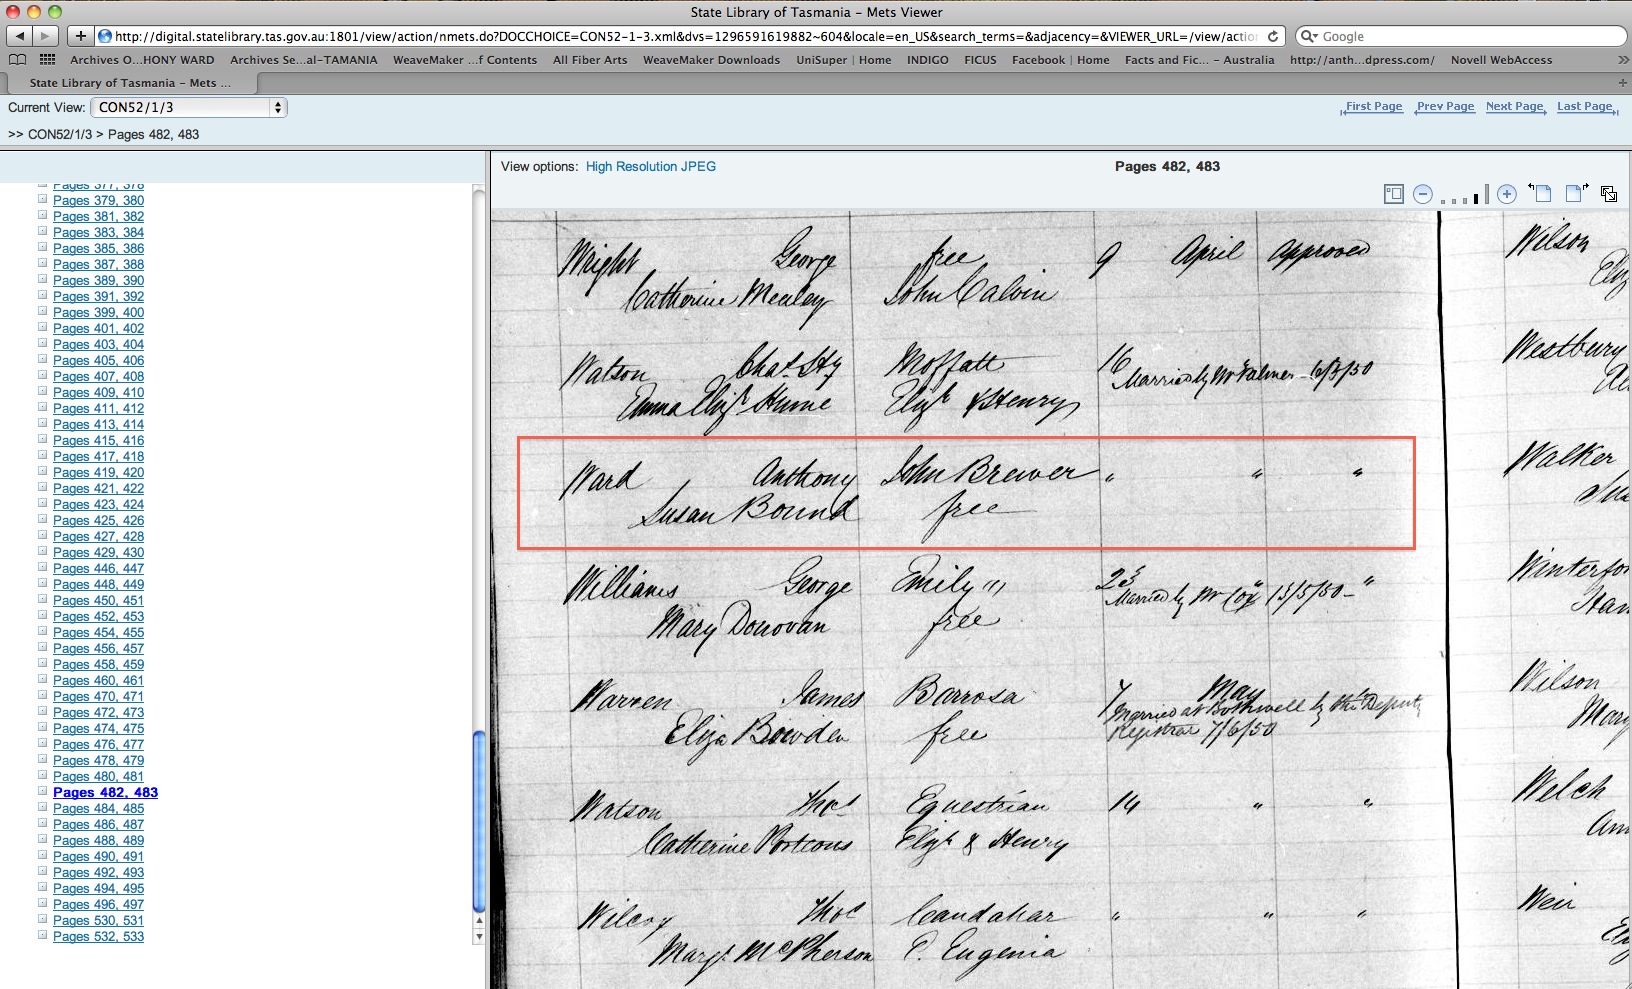 State Library of Tasmania – Mets Viewer
http://digital.statelibrary.tas.gov.au:1801/view/action/nmets.do?DOCCHOICE=CON52-1-3.xml&dvs=1296591619882~604&locale=en_US&search_terms=&adjacency=&VIEWER_URL=/view/actio
Google
Archives O...HONY WARD Archives Se...al-TAMANIA WeaveMaker ...f Contents All Fiber Arts WeaveMaker Downloads UniSuper | Home INDIGO FICUS Facebook | Home Facts and Fic... – Australia http://anth...dpress.com/ Novell WebAccess
State Library of Tasmania – Mets ...
Current View: CON52/1/3
First Page Prev Page Next Page Last Page
>> CON52/1/3 > Pages 482, 483
View options: High Resolution JPEG
Pages 482, 483
Pages 377, 378
Pages 379, 380
Pages 381, 382
Pages 383, 384
Pages 385, 386
Pages 387, 388
Pages 389, 390
Pages 391, 392
Pages 399, 400
Pages 401, 402
Pages 403, 404
Pages 405, 406
Pages 407, 408
Pages 409, 410
Pages 411, 412
Pages 413, 414
Pages 415, 416
Pages 417, 418
Pages 419, 420
Pages 421, 422
Pages 423, 424
Pages 425, 426
Pages 427, 428
Pages 429, 430
Pages 446, 447
Pages 448, 449
Pages 450, 451
Pages 452, 453
Pages 454, 455
Pages 456, 457
Pages 458, 459
Pages 460, 461
Pages 470, 471
Pages 472, 473
Pages 474, 475
Pages 476, 477
Pages 478, 479
Pages 480, 481
Pages 482, 483
Pages 484, 485
Pages 486, 487
Pages 488, 489
Pages 490, 491
Pages 492, 493
Pages 494, 495
Pages 496, 497
Pages 530, 531
Pages 532, 533
Wright George free 9 April approved
Catherine Mealey John Calvin
Watson Chas. Hy Moffatt 16
Married by Mr Palmer 6/5/50
Emma Elizh Hume Elizh & Henry
Ward Anthony John Brewer " " "
Susan Bound free
Williams George Emily " 23 " "
Married by Mr Cox 13/5/50
Mary Donovan free
Warren James Barrosa 7 May
Married at Bothwell by the Deputy
Registrar 7/6/50
Eliza Bowden free
Watson Thos Equestrian 14 " "
Catherine Porteous Elizh & Henry
Wilcox Thos Candahar " " "
Margt McPherson P. Eugenia
Wilson
Westbury
Walker
Wilson
Welch
Weir